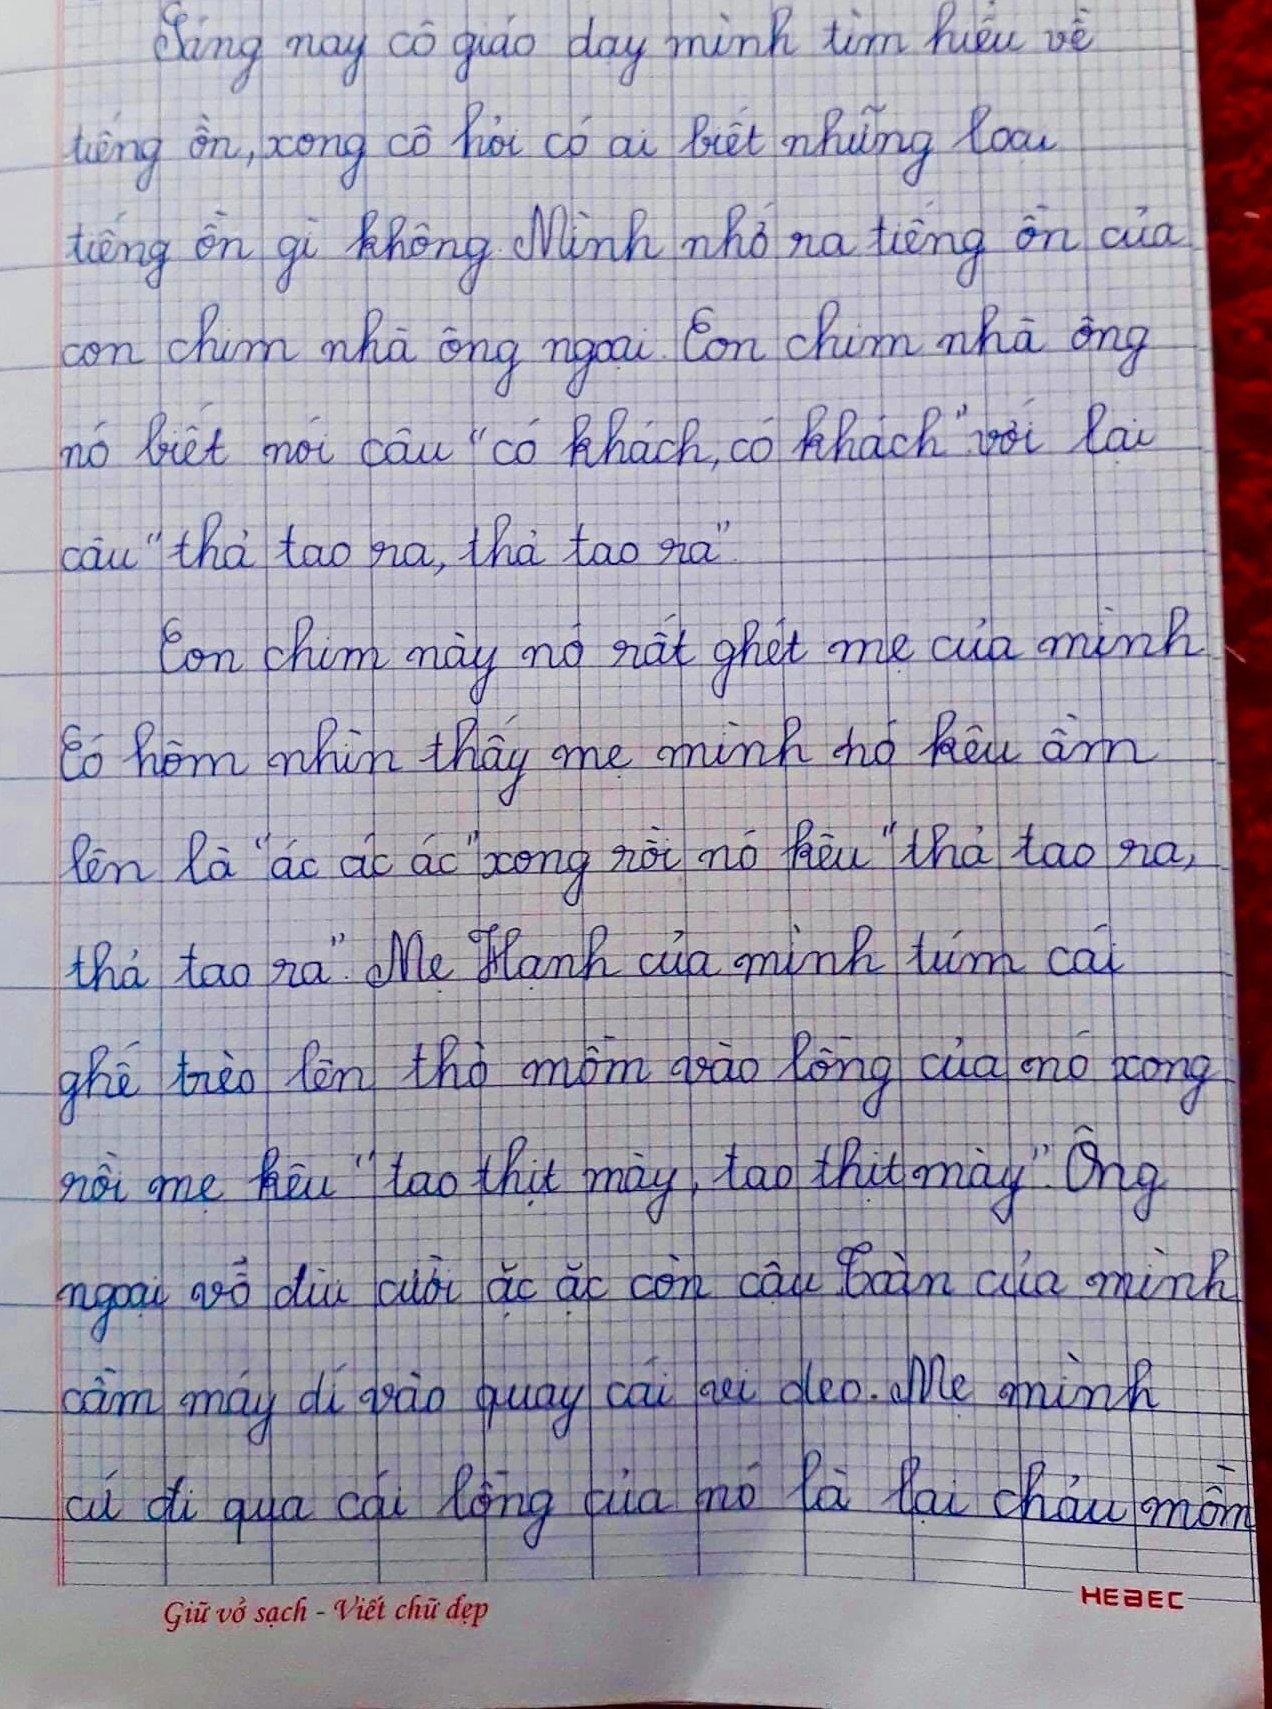 Sáng nay cô giáo dạy mình tìm hiểu về
tiếng ồn, xong cô hỏi có ai biết những loại
tiếng ồn gì không. Mình nhớ ra tiếng ồn của
con chim nhà ông ngoại. Con chim nhà ông
nó biết mỗi câu "có khách, có khách" với lại
câu "thả tao ra, thả tao ra"
Con chim này nó rất ghét mẹ của mình
Có hôm nhìn thấy mẹ mình nó kêu ầm
lên là "ác ác ác" xong rồi nó kêu "thả tao ra,
thả tao ra". Mẹ Hạnh của mình túm cái
ghế trèo lên thò mồm vào lồng của nó xong
rồi mẹ kêu "tao thịt mày, tao thịt mày". Ông
ngoại vỗ đùi cười ặc ặc còn cậu Toàn của mình
cầm máy dí vào quay cái vi deo. Mẹ mình
cứ đi qua cái lồng của nó là lại chảu mồm
Giữ vở sạch - Viết chữ đẹp
HEBEC